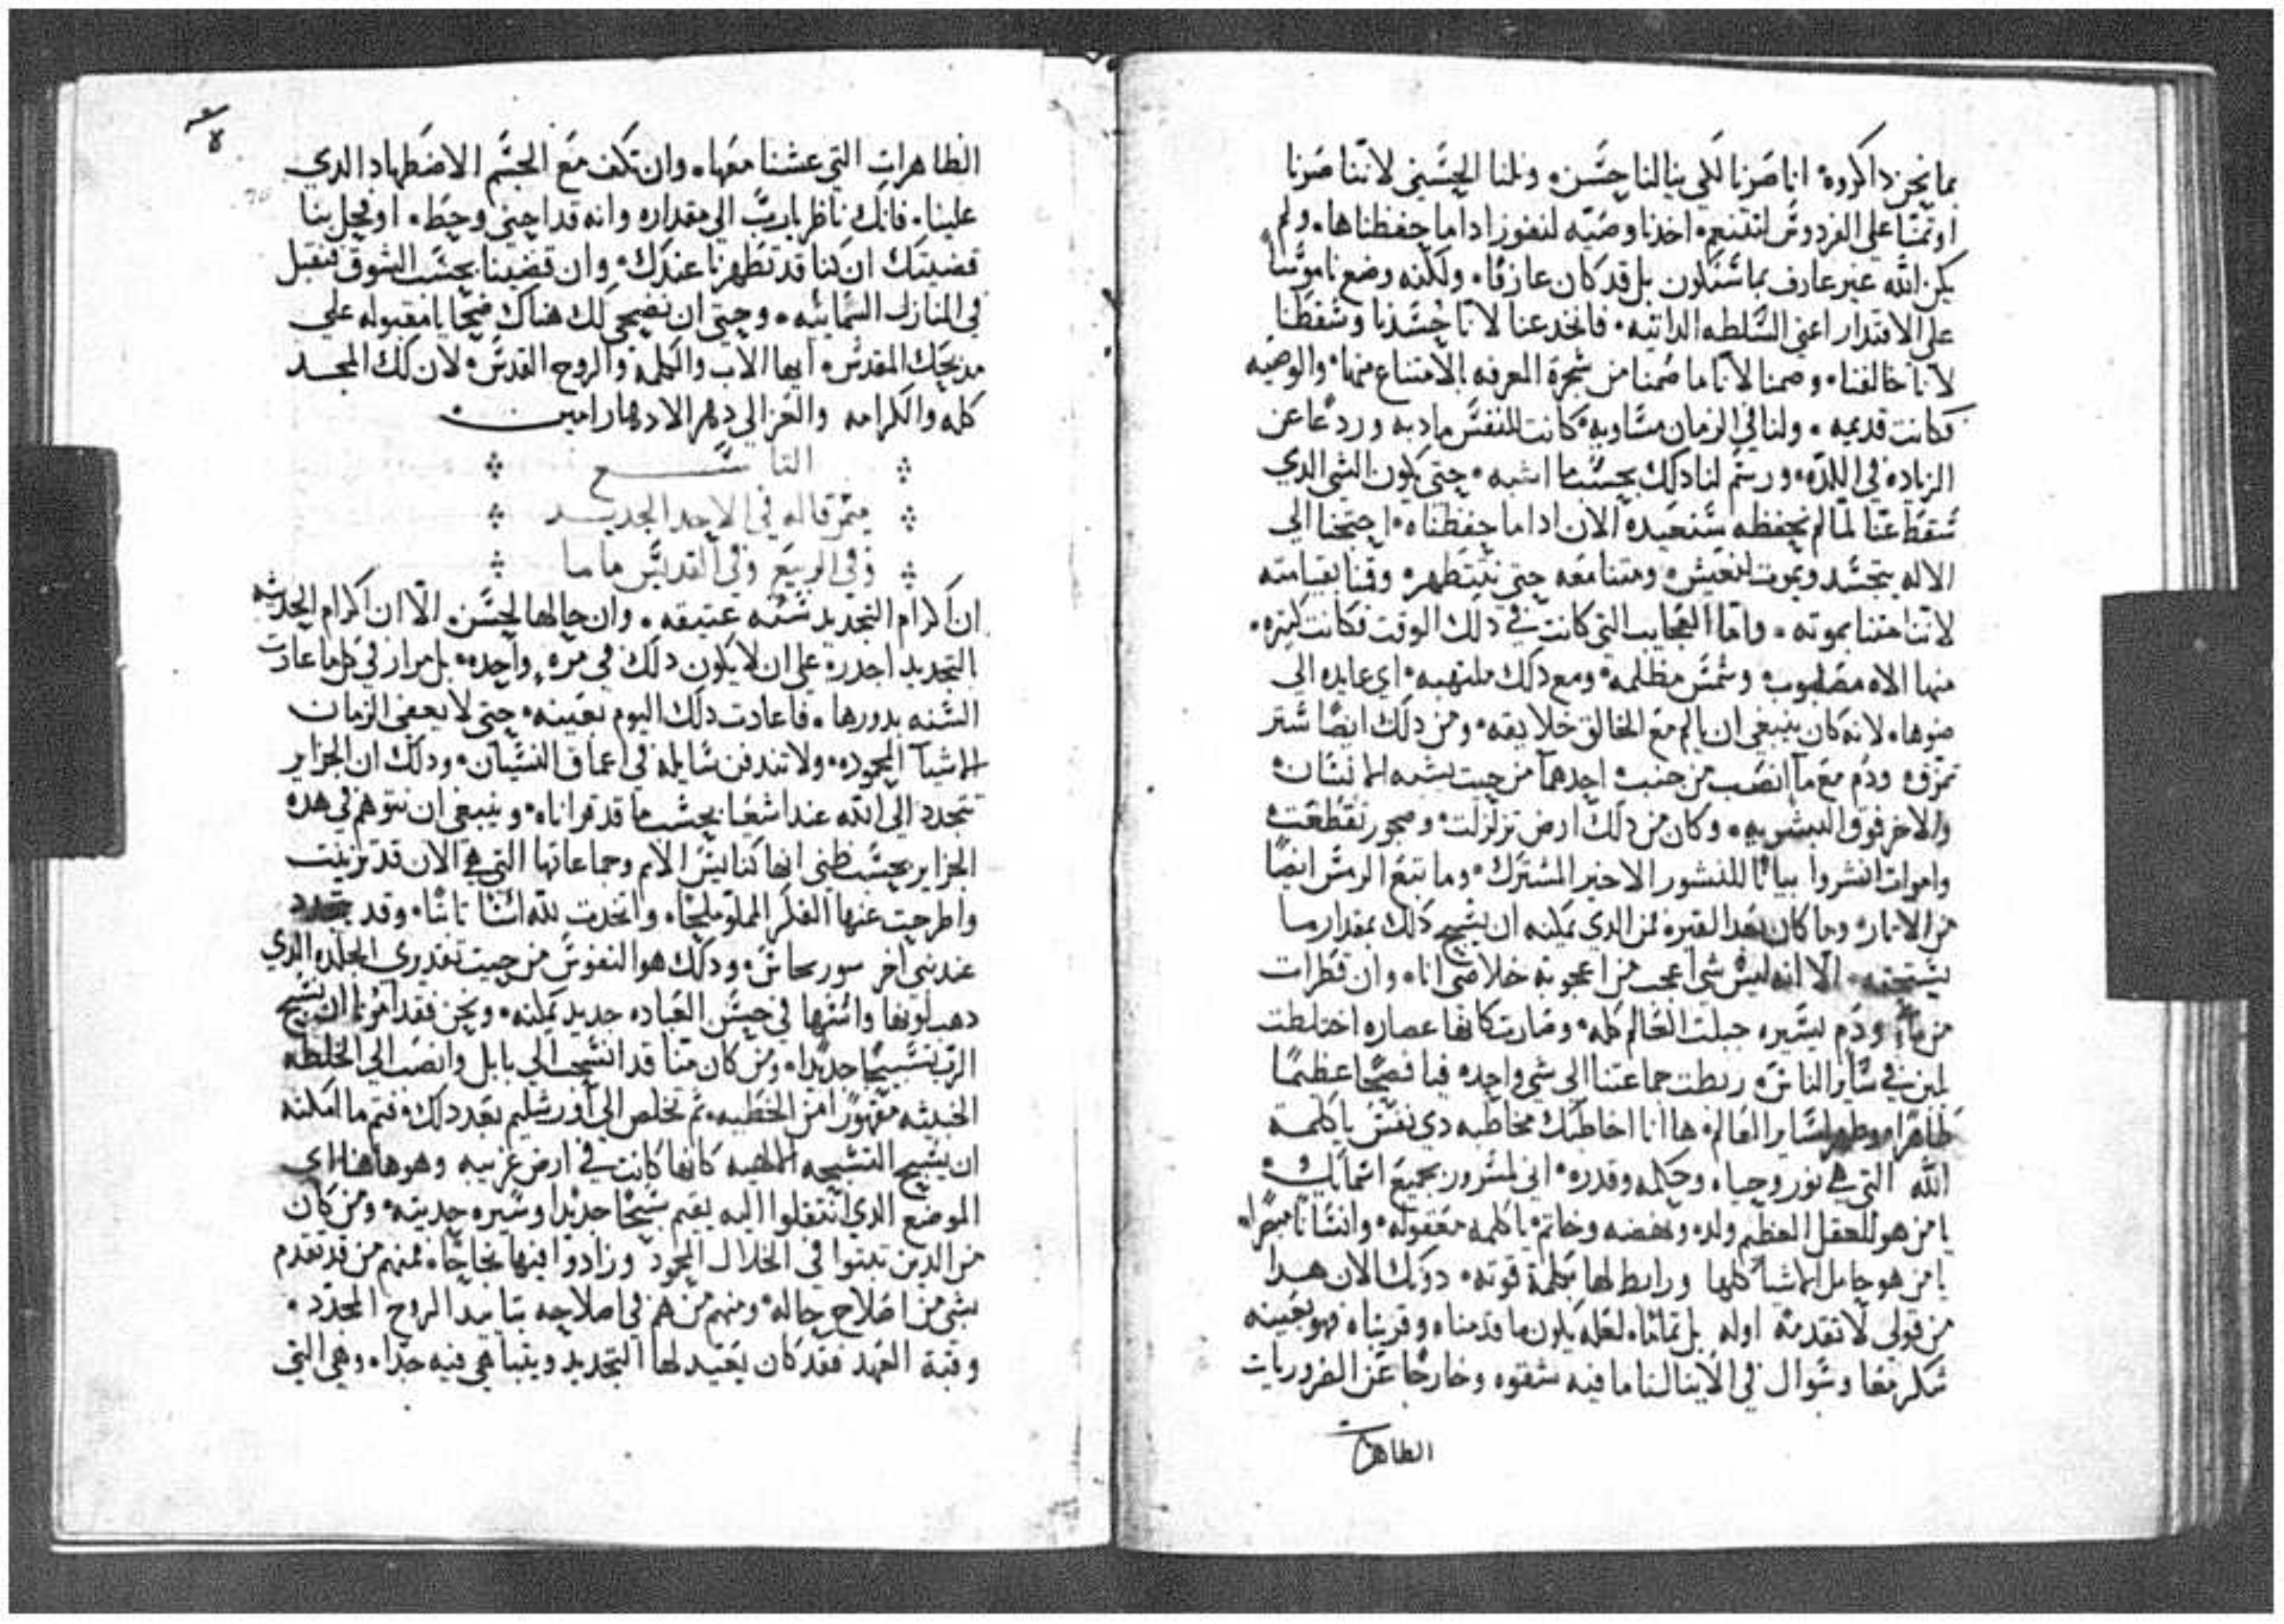 بما نحن داكروه انا صرنا لكي ينالنا حسن ونلنا الحسني لاننا صرنا
اوتمنا علي الفردوس لنتنعم اخدنا وصيه لنفوز اداما حفظناها ولم
يكن الله غير عارف بما سيكون بل قد كان عارفا ولكنه وضع ناموسا
علي الاقتدار اعني السلطه الداتيه فانخدعنا لانا حسدنا وسقطنا
لانا خالفنا وصمنا لانا ما صمنا من شجرة المعرفه بالامتناع منها والوصيه
فكانت قديمه ولنا في الزمان مساويه كانت للنفس مادبه وردعا عن
الزياده في اللده ورسم لنا دلك بحسب ما اشبه حتي يكون الشي الدي
سقط عنا لما لم نحفظه سنعيده الان اداما حفظناه احتجنا الي
الاله يتجسد ويموت لنعيش ومتنا معه حتي نتطهر وقمنا بقيامته
لاننا متنا بموته واما العجايب التي كانت في دلك الوقت فكانت كتيره
منها الاه مصلوب وشمس مظلمه ومع دلك ملتهبه اي عايده الي
ضوها لانه كان ينبغي ان يالم مع الخالق خلايقه ومن دلك ايضا ستر
تمزق ودم مع ما انصب من جنب احدهما من حيت يشبه الانسان
والاخر فوق البشريه وكان من دلك ارض تزلزلت وصخور تقطعت
واموات انشروا بيانا للنشور الاخير المشترك وما تبع الرمس ايضا
من الاتار وما كان بعد القبر فمن الدي يمكنه ان يسبح دلك بمقدار ما
يستحقه الا انه ليس شي اعجب من اعجوبة خلاصي انا وان قطرات
من ماء ودم يسيره جبلت العالم كله وصارت كانها عصاره اختلطت
لبن في ساير الناس ربطت جماعتنا الي شي واحد فيا فصحا عظيما
طاهرا ومطهر لساير العالم ها انا اخاطبك مخاطبه دي نفس يا كلمة
الله التي هي نور وحياه وحكمه وقدره اني لمسرور بجميع اسمايك
يا من هو للعقل العظيم ولد ونهضه وخاتم يا كلمه معقوله وانسانا مبصرا
يا من هو حامل الاشيا كلها ورابط لها بكلمة قوته دونك الان هدا
من قولي لا تقدمة اوله بل تمامًا لعله يكون ما قدمناه وقربناه فهو بعينه
شكر معا وسوال في الا ينالنا ما فيه شقوه وخارجا عن الضروريات
الطاهرات
الطاهرات التي عشنا معها وان تكف مع الجسم الاضطهاد الدي
علينا فانك ناظر يا رب الي مقداره وانه قد احني وحط او تحل بنا
قضيتك ان كنا قد تطهرنا عندك وان قضينا بحسب الشوق فنقبل
في المنازل السمائيه وحتي ان نضحي لك هناك ضحايا مقبوله علي
مدبحك المقدس ايها الاب والكلمة والروح القدس لان لك المجد
كله والكرامه والعز الي دهر الادهار امين
التاسع
ميمر قاله في الاحد الجديد
وفي الربيع وفي القديس ماما
ان اكرام التجديد سنه عتيقه وان حالها لحسن الا ان اكرام الحديثه
التجديد اجدر علي ان لا يكون دلك في مره واحده بل مرار في كل ما عادت
السنه بدورها فاعادت دلك اليوم بعينه حتي لا يعفي الزمان
الاشيا المحموده ولا تندفن سايله في اعماق النسيان ودلك ان الجزاير
تتجدد الي الله عند اشعيا بحسب ما قد قراناه وينبغي ان نتوهم في هده
الجزاير بحسب ظني انها كنايس الامم وجماعاتها التي هي الان قد تزينت
واطرحت عنها الفكر المملو ملحا واتخدت لله اساسا تابتا وقد يتجدد
عند نبي اخر سور نحاس ودلك هو النفوس من حيت تقديري الجلده الدي
دهب لونها وانتها في حسن العباده جديد يمكنه ونحن فقد امرنا ان نسبح
الرب تسبيحا جديدا ومن كان منا قد انسحب الي بابل وانصب الي الخلطه
الخبيته مقهورا من الخطيه تم تخلص الي اورشليم بعد دلك فتم ما امكنه
ان يسبح التسبحه الالهيه كانها كانت في ارض غريبه وهو هاهنا اي
الموضع الدي انتقلوا اليه يقيم سبحا جديدا وسيره حديته ومن كان
من الدين تبتوا في الخلال المحمود وزادوا فيها نجاحا فمنهم من قد تقدم
بشي من اصلاح حاله ومنهم من هم في اصلاحه بتاييد الروح المجدد
وقبة العهد فقد كان يعيد لها التجديد ويتباهي فيه جدا وهي التي